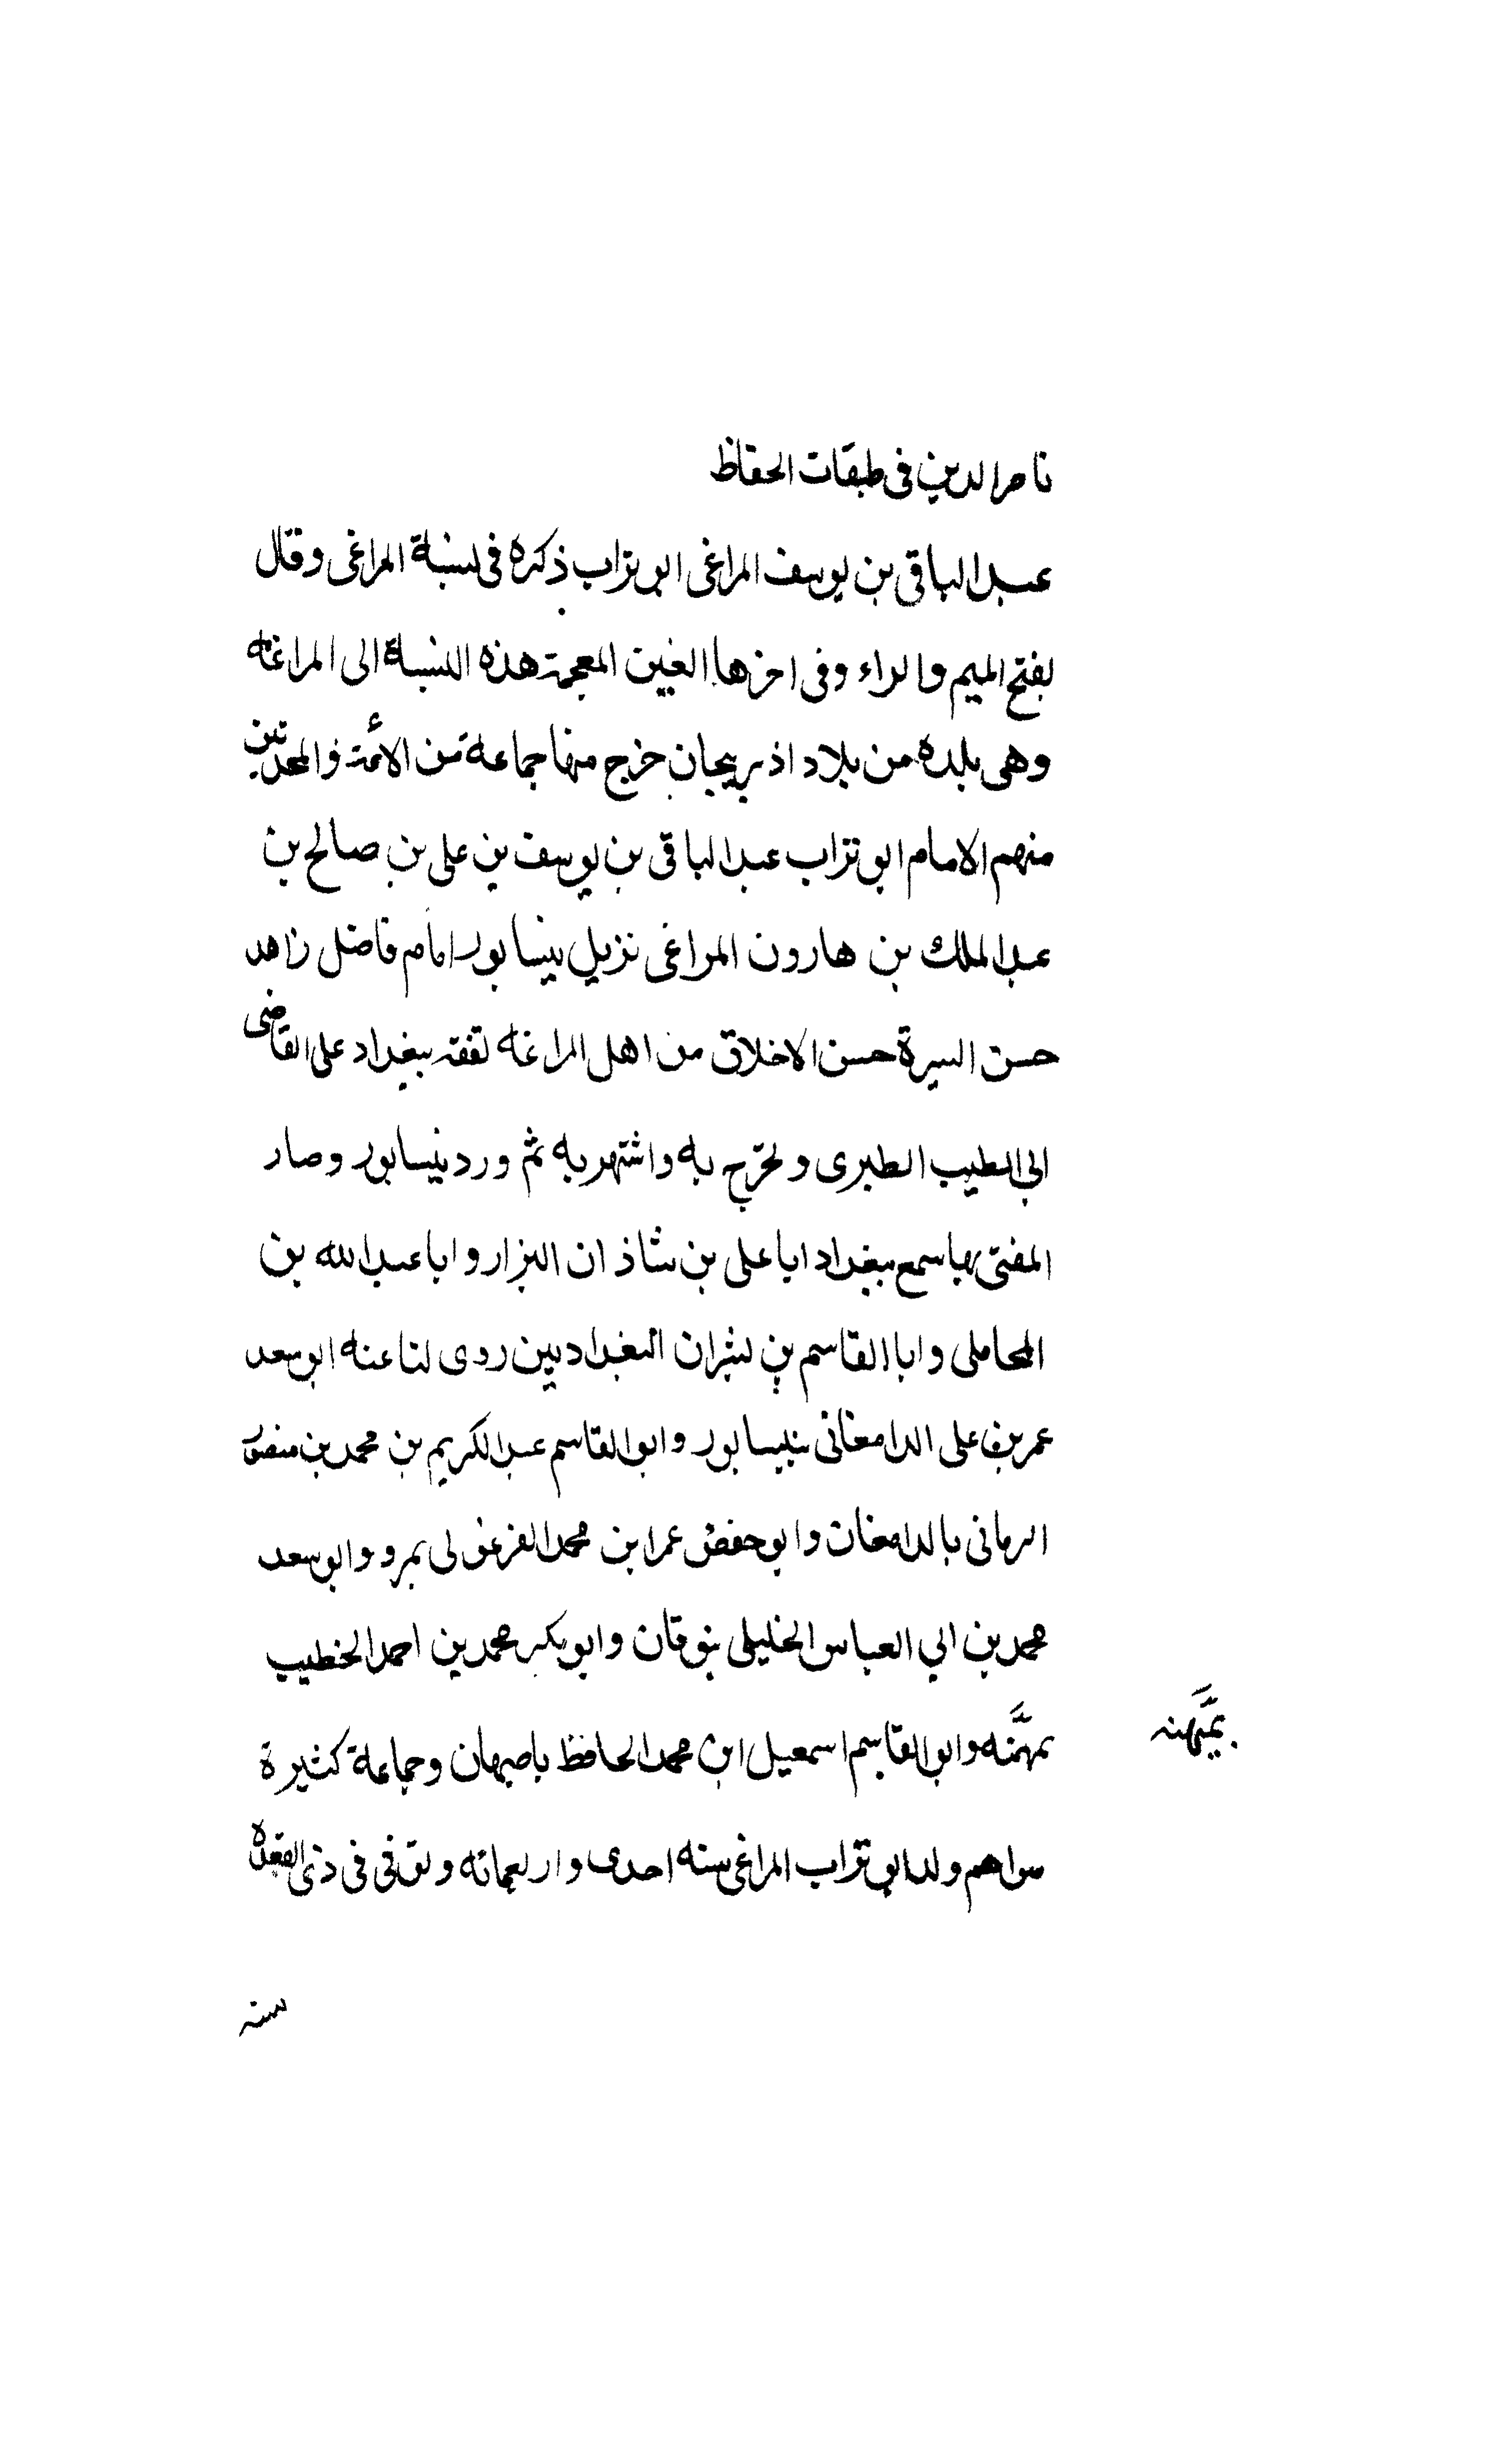 ناصر الدين فى طبقات الحفاظ
عبد الباقى بن يوسف المراغى ابو تراب ذكره فى نسبة المراغى وقال
بفتح الميم والراء وفى اخرها الغين المعجمة هذه النسبة الى المراغه
وهى بلده من بلاد اذربيجان خرج منها جماعة من الائمة والمحدثين
منهم الامام ابو تراب عبد الباقى بن يوسف بن على بن صالح بن
عبد الملك بن هارون المراغى نزيل نيسابور امام فاضل زاهد
حسن السيرة حسن الاخلاق من اهل المراغه تفقه ببغداد على القاضى
ابى الطيب الطبرى وتخرّج به واشتهر به ثم ورد نيسابور وصار
المفتى بها سمع ببغداد ابا على بن شاذان البزار وابا عبد الله بن
المحاملى وابا القاسم بن بشران البغداديين روى لنا عنه ابو سعد
عمر بن على الدامغانى بنيسابور وابو القاسم عبد الكريم بن محمد بن منصور
الرمانى بالدامغان وابو حفص عمر ابن محمد الفرغولى بمرو وابو سعد
محمد بن ابي العباس الخليلى بنوقان وابو بكر محمد بن احمد الخطيب
بمهنَه وابو القاسم اسمعيل ابن محمد الحافظ باصبهان وجماعة كثيرة
بميَهنه
سواهم ولد ابو تراب المراغى سنه احدى واربعمائه وتوفى فى ذى القعده
سنه